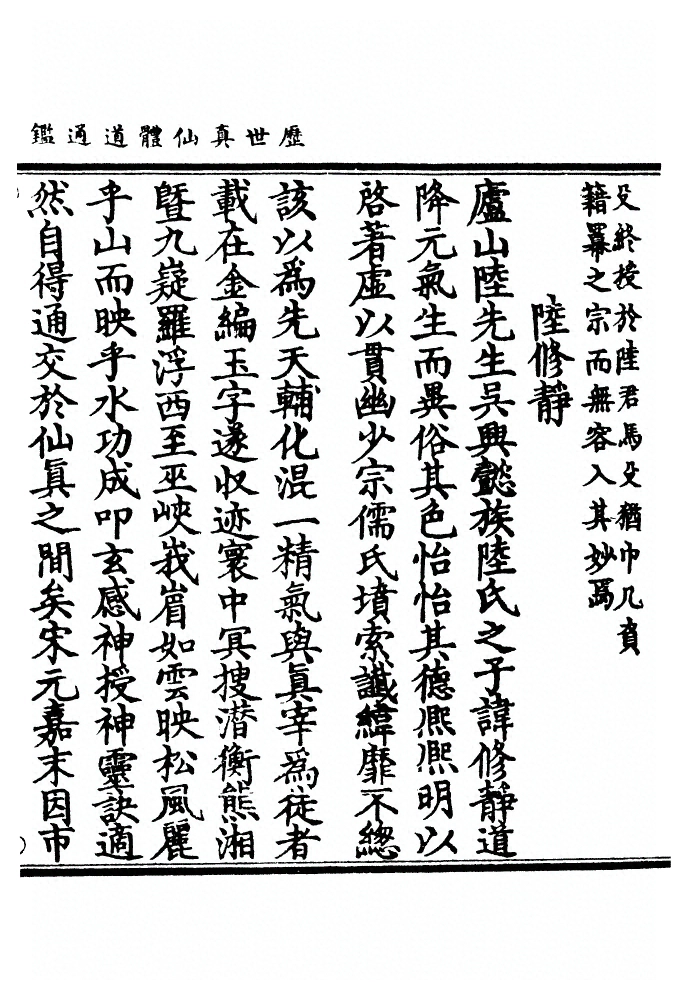 歷世真仙體道通鑑
殳終授於陸君馬殳猶巾几負
籍羃之宗而無容入其妙焉
陸修靜
廬山陸先生吳興懿族陸氏之子諱修靜道
降元氣生而異俗其色怡怡其德熈熈明以
啓著虛以貫幽少宗儒氏墳索讖緯靡不緫
該以為先天輔化混一精氣與眞宰為徒者
載在金編玉字遂収迹寰中冥搜潛衡熊湘
暨九嶷羅浮西至巫峽峩嵋如雲映松風麗
乎山而映乎水功成叩玄感神授神靈訣適
然自得通交於仙眞之間矣宋元嘉末因市